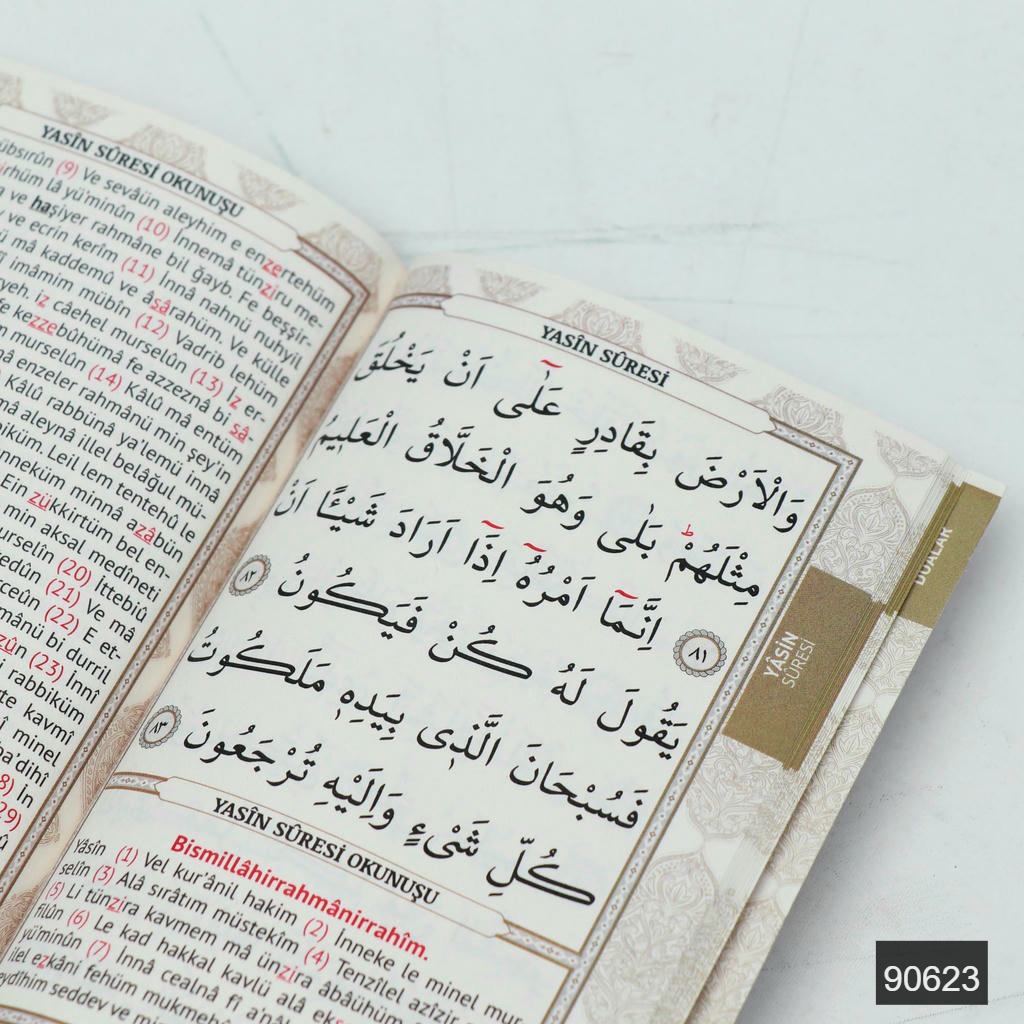 YASÎN SÛRESİ OKUNUŞU
(9) Ve sevâün aleyhim e enzertehüm
lâ yü'minûn (10) İnnemâ tünziru me-
ve haşiyer rahmâne bil ğayb. Fe beşşir-
ve ecrin kerîm (11) İnnâ nahnü nuhyil
mâ kaddemû ve âsârahüm. Ve külle
imâmim mübîn (12) Vadrib lehüm
iz câehel murselûn (13) İz er-
kezzebûhümâ fe azzeznâ bi sâ-
murselûn (14) Kâlû mâ entüm
enzeler rahmânü min şey'in
Kâlû rabbünâ ya'lemü innâ
aleynâ illel belâğul mü-
Leil lem tentehû le
minnâ azâbün
Ein zükkirtüm bel en-
min aksal medîneti
(20) İttebiû
(21) Ve mâ
(22) E et-
bi durril
(23) İnnî
rabbiküm
kavmî
minel
İn
YASÎN SÛRESİ
وَالْاَرْضَ بِقَادِرٍ عَلٰٓى اَنْ يَخْلُقَ
مِثْلَهُمْۜ بَلٰى وَهُوَ الْخَلَّاقُ الْعَلٖيمُ
﴿٨١﴾ اِنَّمَٓا اَمْرُهُٓ اِذَٓا اَرَادَ شَيْـًٔا اَنْ
يَقُولَ لَهُ كُنْ فَيَكُونُ ﴿٨٢﴾
فَسُبْحَانَ الَّذٖى بِيَدِهٖ مَلَكُوتُ
كُلِّ شَیْءٍ وَاِلَيْهِ تُرْجَعُونَ ﴿٨٣﴾
YASÎN SÛRESİ OKUNUŞU
Bismillâhirrahmânirrahîm.
Yâsîn (1) Vel kur'ânil hakim (2) İnneke le minel mur-
selîn (3) Alâ sırâtım müstekîm (4) Tenzîlel azîzir
(5) Li tünzira kavmem mâ ünzira âbâühüm
filûn (6) Le kad hakkal kavlü alâ
yü'minûn (7) İnnâ cealnâ fî
ilel ezkâni fehüm
seddev ve
YÂSİN
SÛRESİ
DUALAR
90623